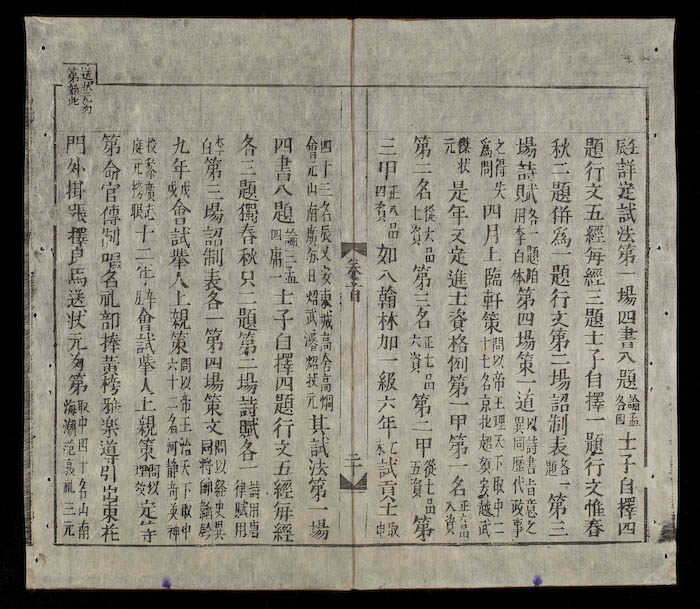 送狀元归
第始此
庭詳定試法第一場四書八題論孟各四士子自擇四
題行文五經每經三題士子自擇一題行文惟春
秋二題併爲一題行文第二場詔制表各一題第三
場詩賦各一題用李白体第四場策一道以詩書旨意之異同歷代政事
之得失爲問四月上臨軒策問以帝王理天下取中二十七名京北超類安越武
傑狀元是年文定進士資格例第一甲第一名正六品八資
第二名從六品七資第三名正七品六資第二甲從七品五資第
三甲正八品四資如入翰林加一級六年乙未試貢士取中
卷首 二十
四十三名東城高會元山南廣狀元其試法第一場
四書八題論三孟四庸一士子自擇四題行文五經每經
各三題獨春秋只二題第二場詩賦各一詩用唐律賦用
李白第三場詔制表各一第四場策文問以經史異同將帥韜鈐
九年戊戌會試舉人上親策問以帝王治天下取中六十二名河靜奇英神
投黎廣志庭元榜眼十二年辛丑會試舉人上親策問以理數定等
第命官傳制唱名礼部捧黃榜雅樂導引出東花
門外掛張擇良馬送狀元归第取中四十名山南海潮范三元